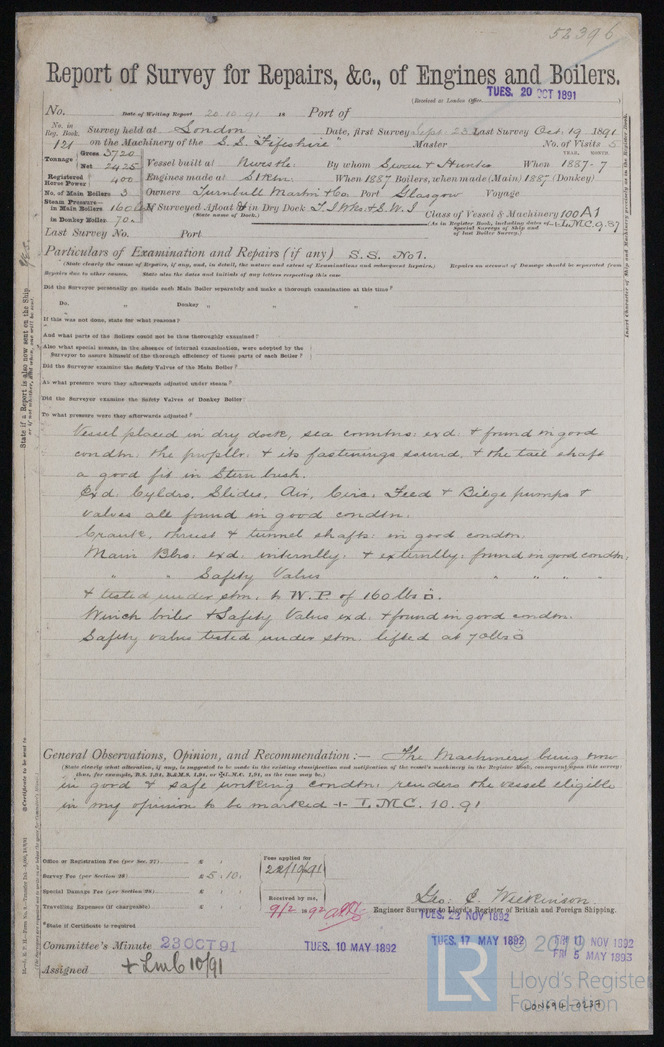 52396
Report of Survey for Repairs, &c., of Engines and Boilers.
(Received at London Office TUES. 20 OCT 1891)
No. Date of Writing Report 20.10.91 18 Port of
No. in Reg. Book. Survey held at London Date, first Survey Sept. 23 Last Survey Oct. 19 1891
121 on the Machinery of the S.S. "Fifeshire" Master No. of Visits 5
Tonnage Gross 3720 Net 2425 Vessel built at Nwcstle By whom Swan & Hunter When 1887-7 YEAR. MONTH.
Registered Horse Power 400 Engines made at When 1887 Boilers, when made (Main) 1887 (Donkey)
No. of Main Boilers 3 Owners Turnbull Martin & Co. Port Glasgow Voyage
Steam Pressure in Main Boilers 160 lbs If Surveyed Afloat & in Dry Dock
(State name of Dock.)
in Donkey Boiler 70
Class of Vessel & Machinery 100A1
(As in Register Book, including dates of Special Surveys of Ship and of last Boiler Survey.) + L.M.C. 9.87
Last Survey No. Port
Particulars of Examination and Repairs (if any) S.S. No 1.
(State clearly the cause of Repairs, if any, and, in detail, the nature and extent of Examinations and subsequent Repairs.) Repairs on account of Damage should be separated from
Repairs due to other causes. State also the dates and initials of any letters respecting this case
Did the Surveyor personally go inside each Main Boiler separately and make a thorough examination at this time?
Do. " Donkey " " "
If this was not done, state for what reasons?
And what parts of the Boilers could not be thus thoroughly examined?
Also what special means, in the absence of internal examination, were adopted by the
Surveyor to assure himself of the thorough efficiency of those parts of each Boiler?
Did the Surveyor examine the Safety Valves of the Main Boiler?
At what pressure were they afterwards adjusted under steam?
Did the Surveyor examine the Safety Valves of Donkey Boiler?
To what pressure were they afterwards adjusted?
Vessel placed in dry dock, sea conntns: exd. & found in good
condtn. the propllr: & its fastenings sound, & the tail shaft
a good fit in Stern bush.
Exd. Cyldrs, Slides, Air, Circ, Feed & Bilge pumps &
valves all found in good condtn.
Crank, thrust & tunnel shafts: in good condtn.
Main Blrs: exd. internlly: & externlly: found in good condtn,
" " Safety Valves " " " "
& tested under stm. to W.P. of 160 lbs □.
Winch boiler & Safety Valves exd. & found in good condtn.
Safety valves tested under stm. lifted at 70 lbs □
General Observations, Opinion, and Recommendation :— The Machinery being now
(State clearly what alteration, if any, is suggested to be made in the existing classification and notification of the vessel's machinery in the Register Book, consequent upon this survey:
thus, for example, B.S. 1,91, B.&M.S. 1,91, or ✠L.M.C. 1,91, as the case may be.)
in good & safe working condtn: renders the vessel eligible
in my opinion to be marked + L.M.C. 10.91
Office or Registration Fee (per Sec. 27) £ : :
Survey Fee (per Section 28) £ 5 : 10 :
Special Damage Fee (per Section 28) £ : :
Travelling Expenses (if chargeable) £ : :
Fees applied for
22/10/91
Received by me,
9/2 18 92
Geo: E. Wilkinson
Engineer Surveyor to Lloyd's Register of British and Foreign Shipping.
*State if Certificate is required
Committee's Minute 23 OCT 91
TUES. 10 MAY 1892
TUES. 23 NOV 1892
TUES. 17 MAY 1892
FRI 11 NOV 1892
FRI 5 MAY 1893
Assigned + LMC 10/91
State if a Report is also now sent on the Ship,
LR
Lloyd's Register
Foundation
LON694-0237